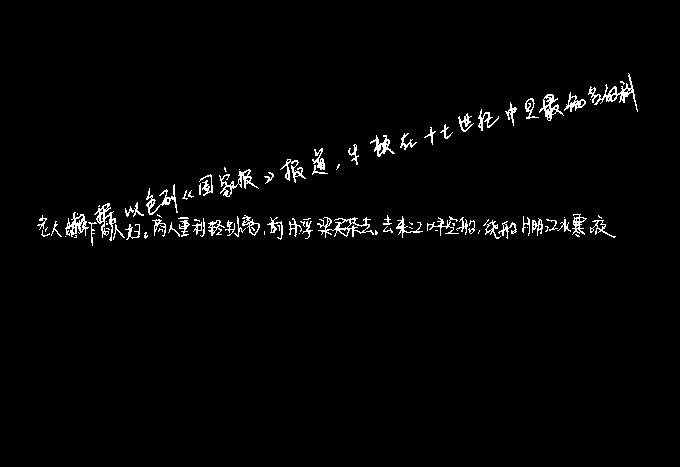 据以色列《国家报》报道，牛顿在十七世纪中是最知名的科
老大嫁作商人妇。商人重利轻别离，前月浮梁买茶去。去来江口守空船，绕船月明江水寒。夜